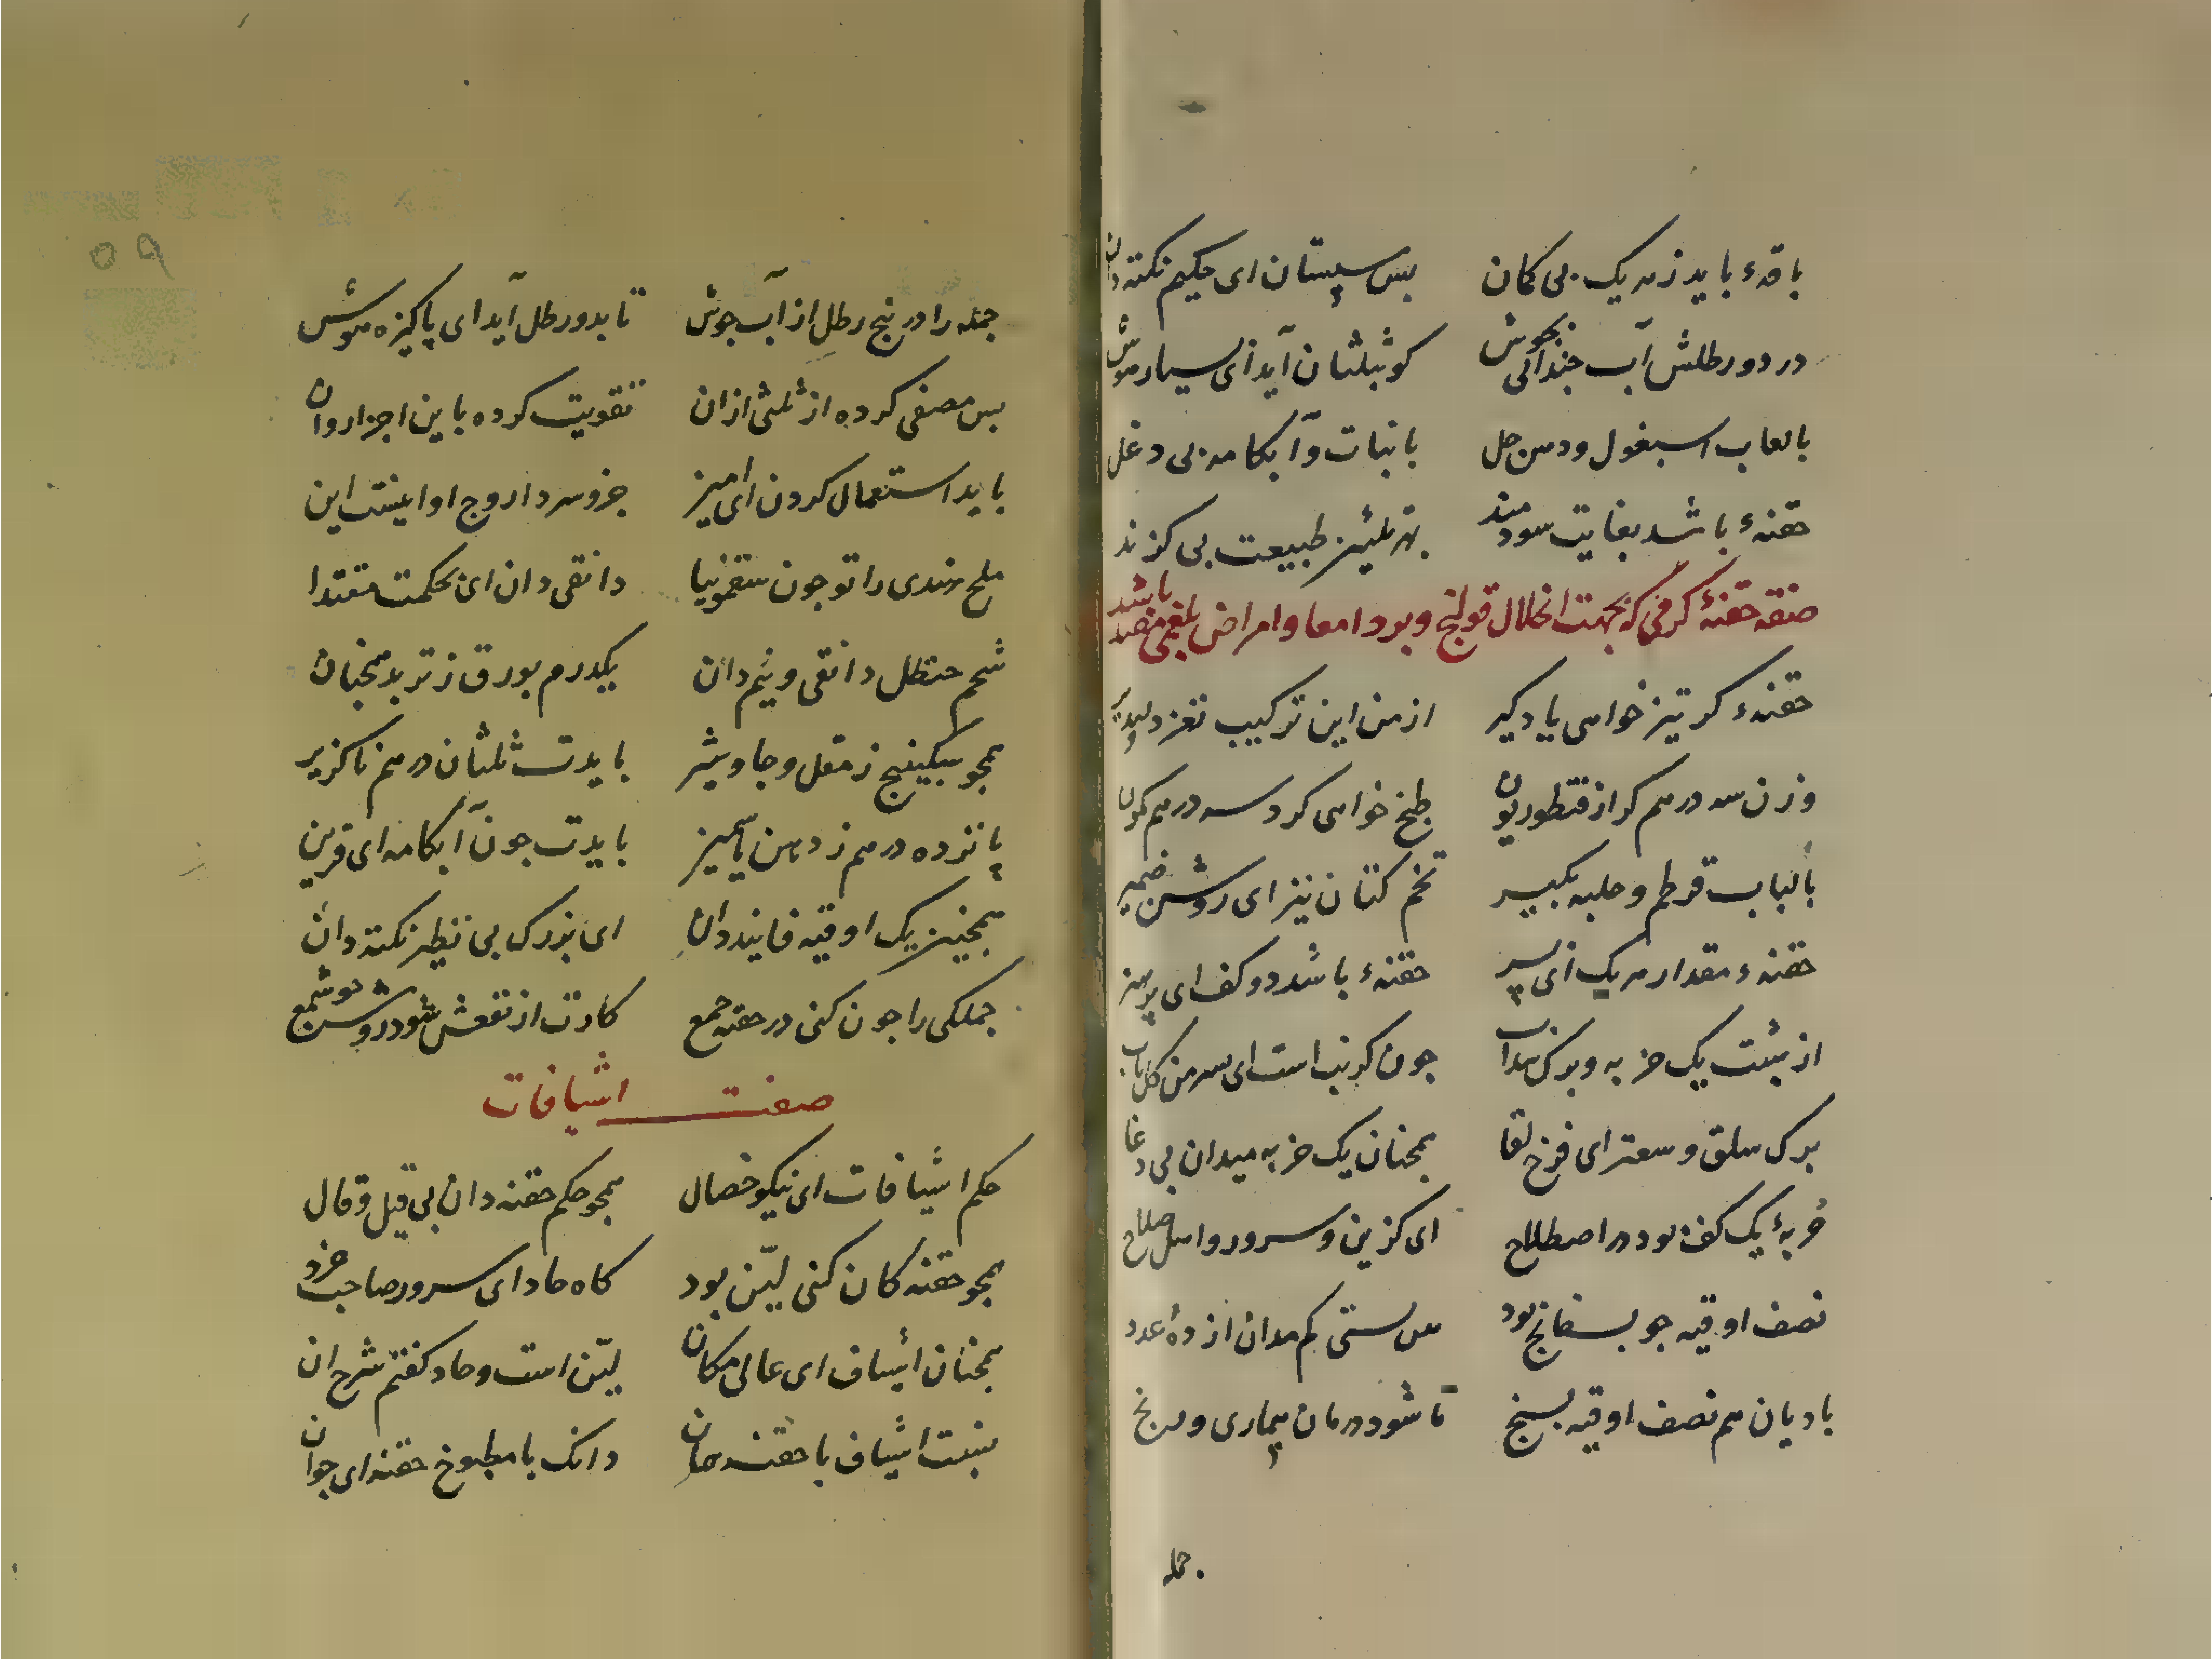 باقهٔ باید ز هر یک بی کمان بس سپستان ای حکیم نکته دان
در دو رطلش آب چندانی بجوش کو بثلثان آید ای بسیار هوش
با لعاب اسبغول و دهن حل با نبات و آبکامه بی دغل
حقنهٔ باشد بغایت سودمند بهر تلیین طبیعت بی کزند
صفة حقنهٔ کرمی که بجهت انحلال قولنج و برد امعا و امراض بلغمی مفید باشد
حقنهٔ کر تیز خواهی یاد کیر از من این ترکیب نغز دلپذیر
وزن سه درهم کر از قنطوریون طبخ خواهی کرد سه درهم کون
با لباب قرطم و حلبه بکیر تخم کتان نیز ای روشن ضمیر
حقنهٔ مقدار هر یک ای پسر حقنهٔ باشد دو کف ای پر هنر
از شبت یک حزبه و برک سداب چون کرنب است ای سمن کل
برک سلق و سعتر ای فرخ لقا همچنان یک حزبه میدان بی دغا
حزبهٔ یک کف بود در اصطلاح ای کزین و سرور و اهل صلاح
نصف اوقیه چو بسفانج بود بس ستی کم مدان از ده عدد
بادیان هم نصف اوقیه بسنج تا شود درمان بیماری و رنج
جمله
جمله را در پنج رطل از آب جوش تا بدو رطل آید ای پاکیزه هوش
بس مصفی کرده از ثلثی ازان تقویت کرده باین اجزا روان
باید استعمال کردن ای امیز جزو هر دارو ج او اینست این
ملح هندی را تو چون سقمونیا دانقی دان ای بحکمت مقتدا
شحم حنظل دانقی و نیم دان یکدرم بورق ز تربد همچنان
همچو سکبینج ز مقل و جاوشیر بایدت ثلثان درهم ناکزیر
پانزده درهم ز دهن یاسمین بایدت چون آبکامه ای قرین
همچنین یک اوقیه فانید دان ای بزرک بی نظیر نکته دان
جملکی را چون کنی در حقنه جمع کارت از نفعش شود روشن چو شمع
صفت اشیافات
حکم اشیافات ای نیکو خصال همچو حکم حقنه دان بی قیل و قال
همچو حقنه کان کنی لیّن بود کاه حاد ای سرور صاحب خرد
همچنان اشیاف ای عالی مکان لیّن است و حاد کفتم شرح ان
نسبت اشیاف با حقنه همان دانک با مطبوخ حقنه ای جوان
۵۹